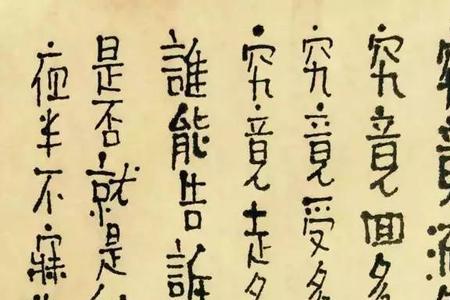 究竟
究竟回多
究竟受多
究竟走多
誰能告
是否就是
夜半不寐